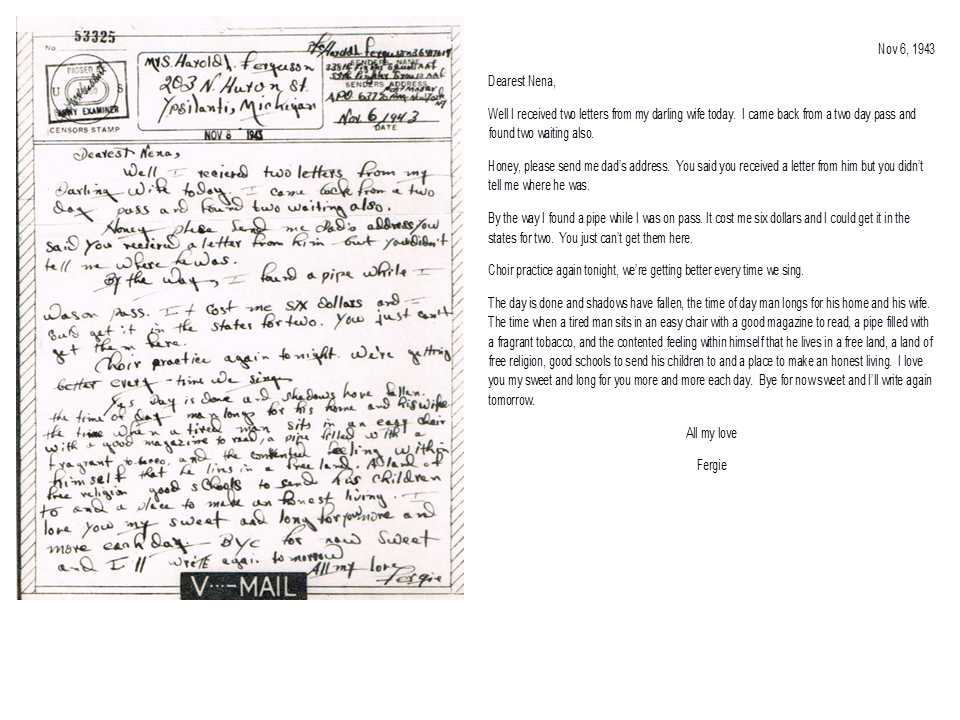 No 53325
PASSED
U S
ARMY EXAMINER
CENSORS STAMP
Mrs. Harold L. Ferguson
203 N. Huron St.
Ypsilanti, Michigan
NOV 8 1943
Pfc Harold L. Ferguson
SENDERS NAME
SENDERS ADDRESS
APO 637
Nov 6, 1943
DATE
Dearest Nena,
Well I recieved two letters from my
Darling Wife today. I came back from a two
day pass and found two waiting also.
Honey please send me Dad's address you
said you recieved a letter from him but you didn't
tell me where he was.
By the way, I found a pipe while I
was on pass. It cost me six dollars and I
could get it in the states for two. You just can't
get them here.
Choir practice again tonight. We're getting
better every time we sing.
Yes Day is done and shadows have fallen.
the time of day man longs for his home and his wife
the time when a tired man sits in an easy chair
with a good magazine to read, a pipe filled with a
fragrant tobacco, and the contented feeling within
himself that he lives in a free land. A land of
free religion good schools to send his children
to and a place to make an honest living. I
love you my sweet and long for you more and
more each day. Bye for now Sweet
and I'll write again tomorrow
All my love
Fergie
V···—MAIL
Nov 6, 1943
Dearest Nena,
Well I received two letters from my darling wife today. I came back from a two day pass and
found two waiting also.
Honey, please send me dad's address. You said you received a letter from him but you didn't
tell me where he was.
By the way I found a pipe while I was on pass. It cost me six dollars and I could get it in the
states for two. You just can't get them here.
Choir practice again tonight, we're getting better every time we sing.
The day is done and shadows have fallen, the time of day man longs for his home and his wife.
The time when a tired man sits in an easy chair with a good magazine to read, a pipe filled with
a fragrant tobacco, and the contented feeling within himself that he lives in a free land, a land of
free religion, good schools to send his children to and a place to make an honest living. I love
you my sweet and long for you more and more each day. Bye for now sweet and I'll write again
tomorrow.
All my love
Fergie